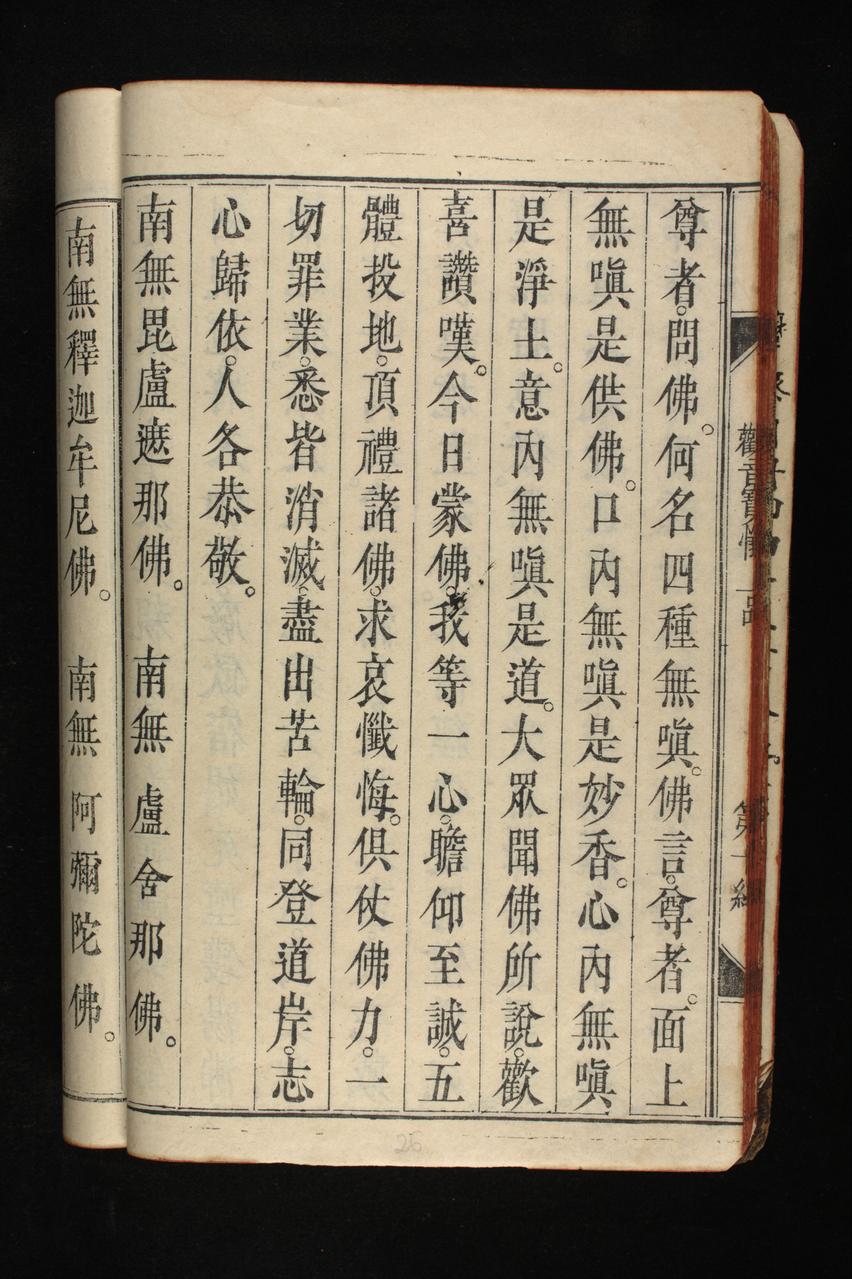 尊者。問佛。何名四種無嗔。佛言。尊者。面上
無嗔是供佛。口內無嗔是妙香。心內無嗔
是淨土。意內無嗔是道。大眾聞佛所說。歡
喜讚嘆。今日蒙佛。我等一心。瞻仰至誠。五
體投地。頂禮諸佛。求哀懺悔。俱仗佛力。一
切罪業。悉皆消滅。盡出苦輪。同登道岸。志
心歸依。人各恭敬。
南無毘盧遮那佛。 南無盧舍那佛。
南無釋迦牟尼佛。 南無阿彌陀佛。
26